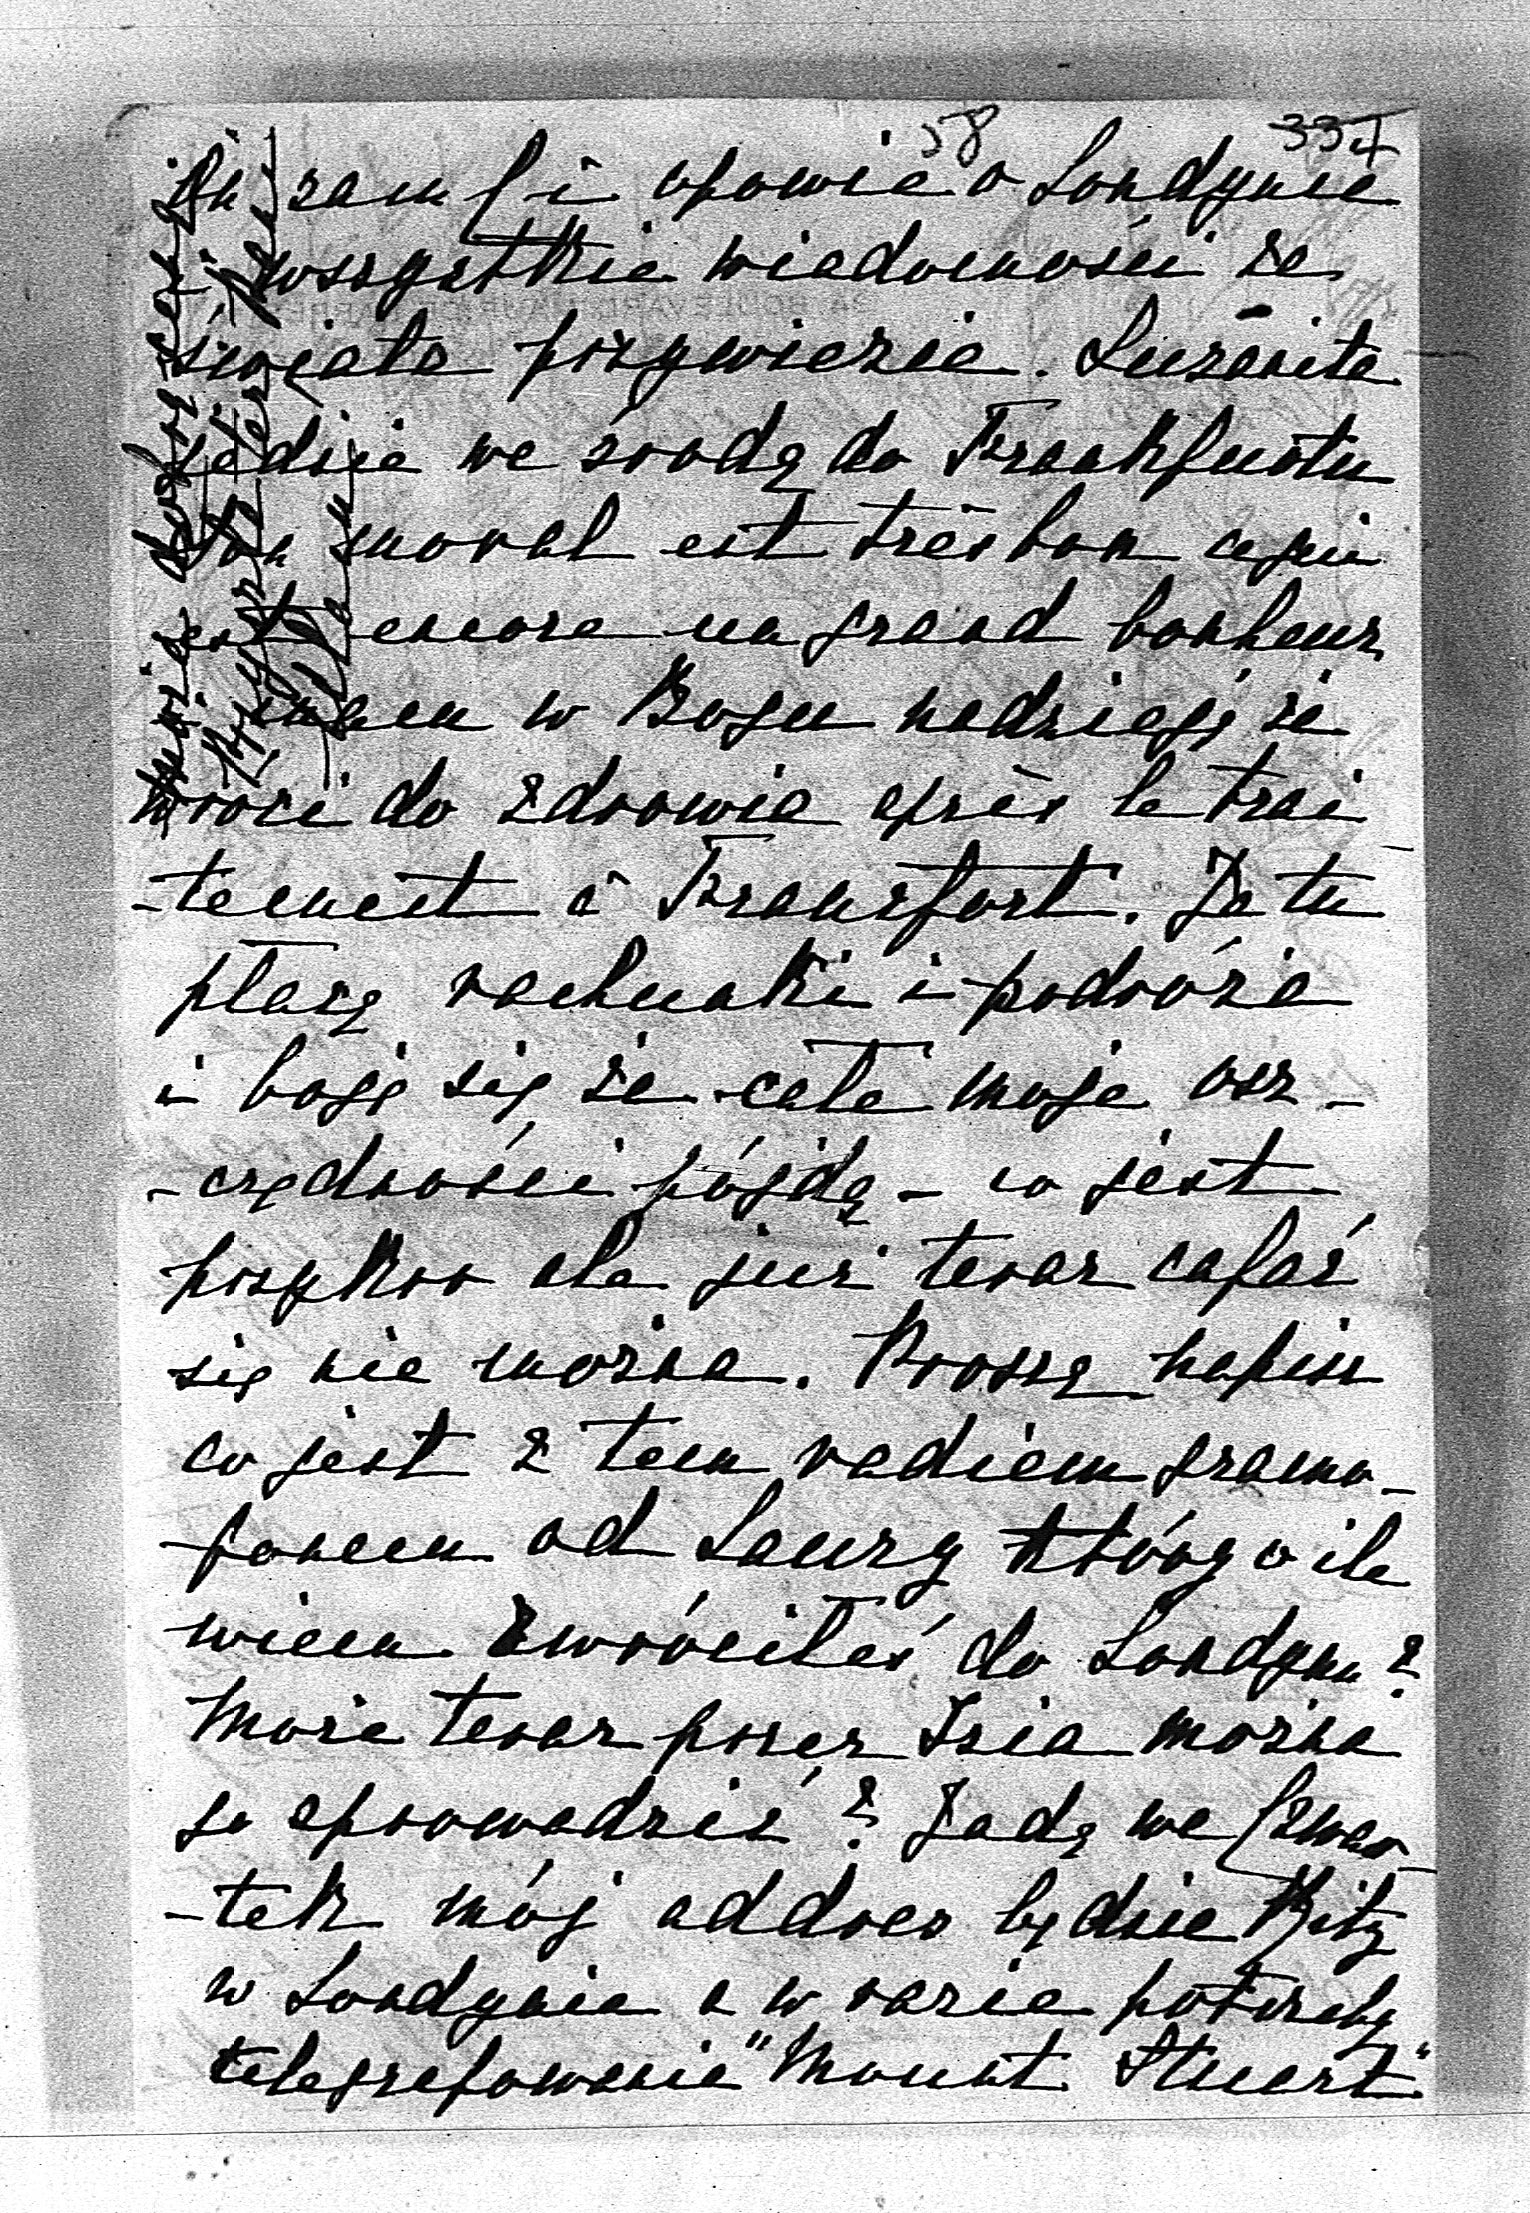 58 334
sam Ci opowie o Londynie
i wszystkie wiadomości ze
świata przywiezie. Luzanita
jedzie we środę do Frankfurtu
Son moral est très bon ce qui
est encore un grand bonheur
i mam w Bogu nadzieję że
wróci do zdrowia après le trai
-tement à Francfort. Ja tu
płacę rachunki i podróże
i boję się że całe moje osz-
-czędności pójdą - co jest
przykro ale już teraz cofać
się nie można. Proszę napisz
co jest z tem radiem gramo-
-fonem od Laury który o ile
wiem zwróciłeś do Londynu?
Może teraz przez Izia można
go sprowadzić? Jadę we Czwar-
-tek mój addres będzie Ritz
w Londynie a w razie potrzeby
telegrafowanie "Mount Stuart"